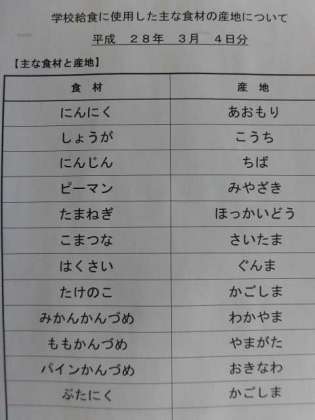 学校給食に使用した主な食材の産地について
平成 28年 3月 4日分
【主な食材と産地】
食 材 産 地
にんにく あおもり
しょうが こうち
にんじん ちば
ピーマン みやざき
たまねぎ ほっかいどう
こまつな さいたま
はくさい ぐんま
たけのこ かごしま
みかんかんづめ わかやま
ももかんづめ やまがた
パインかんづめ おきなわ
ぶたにく かごしま